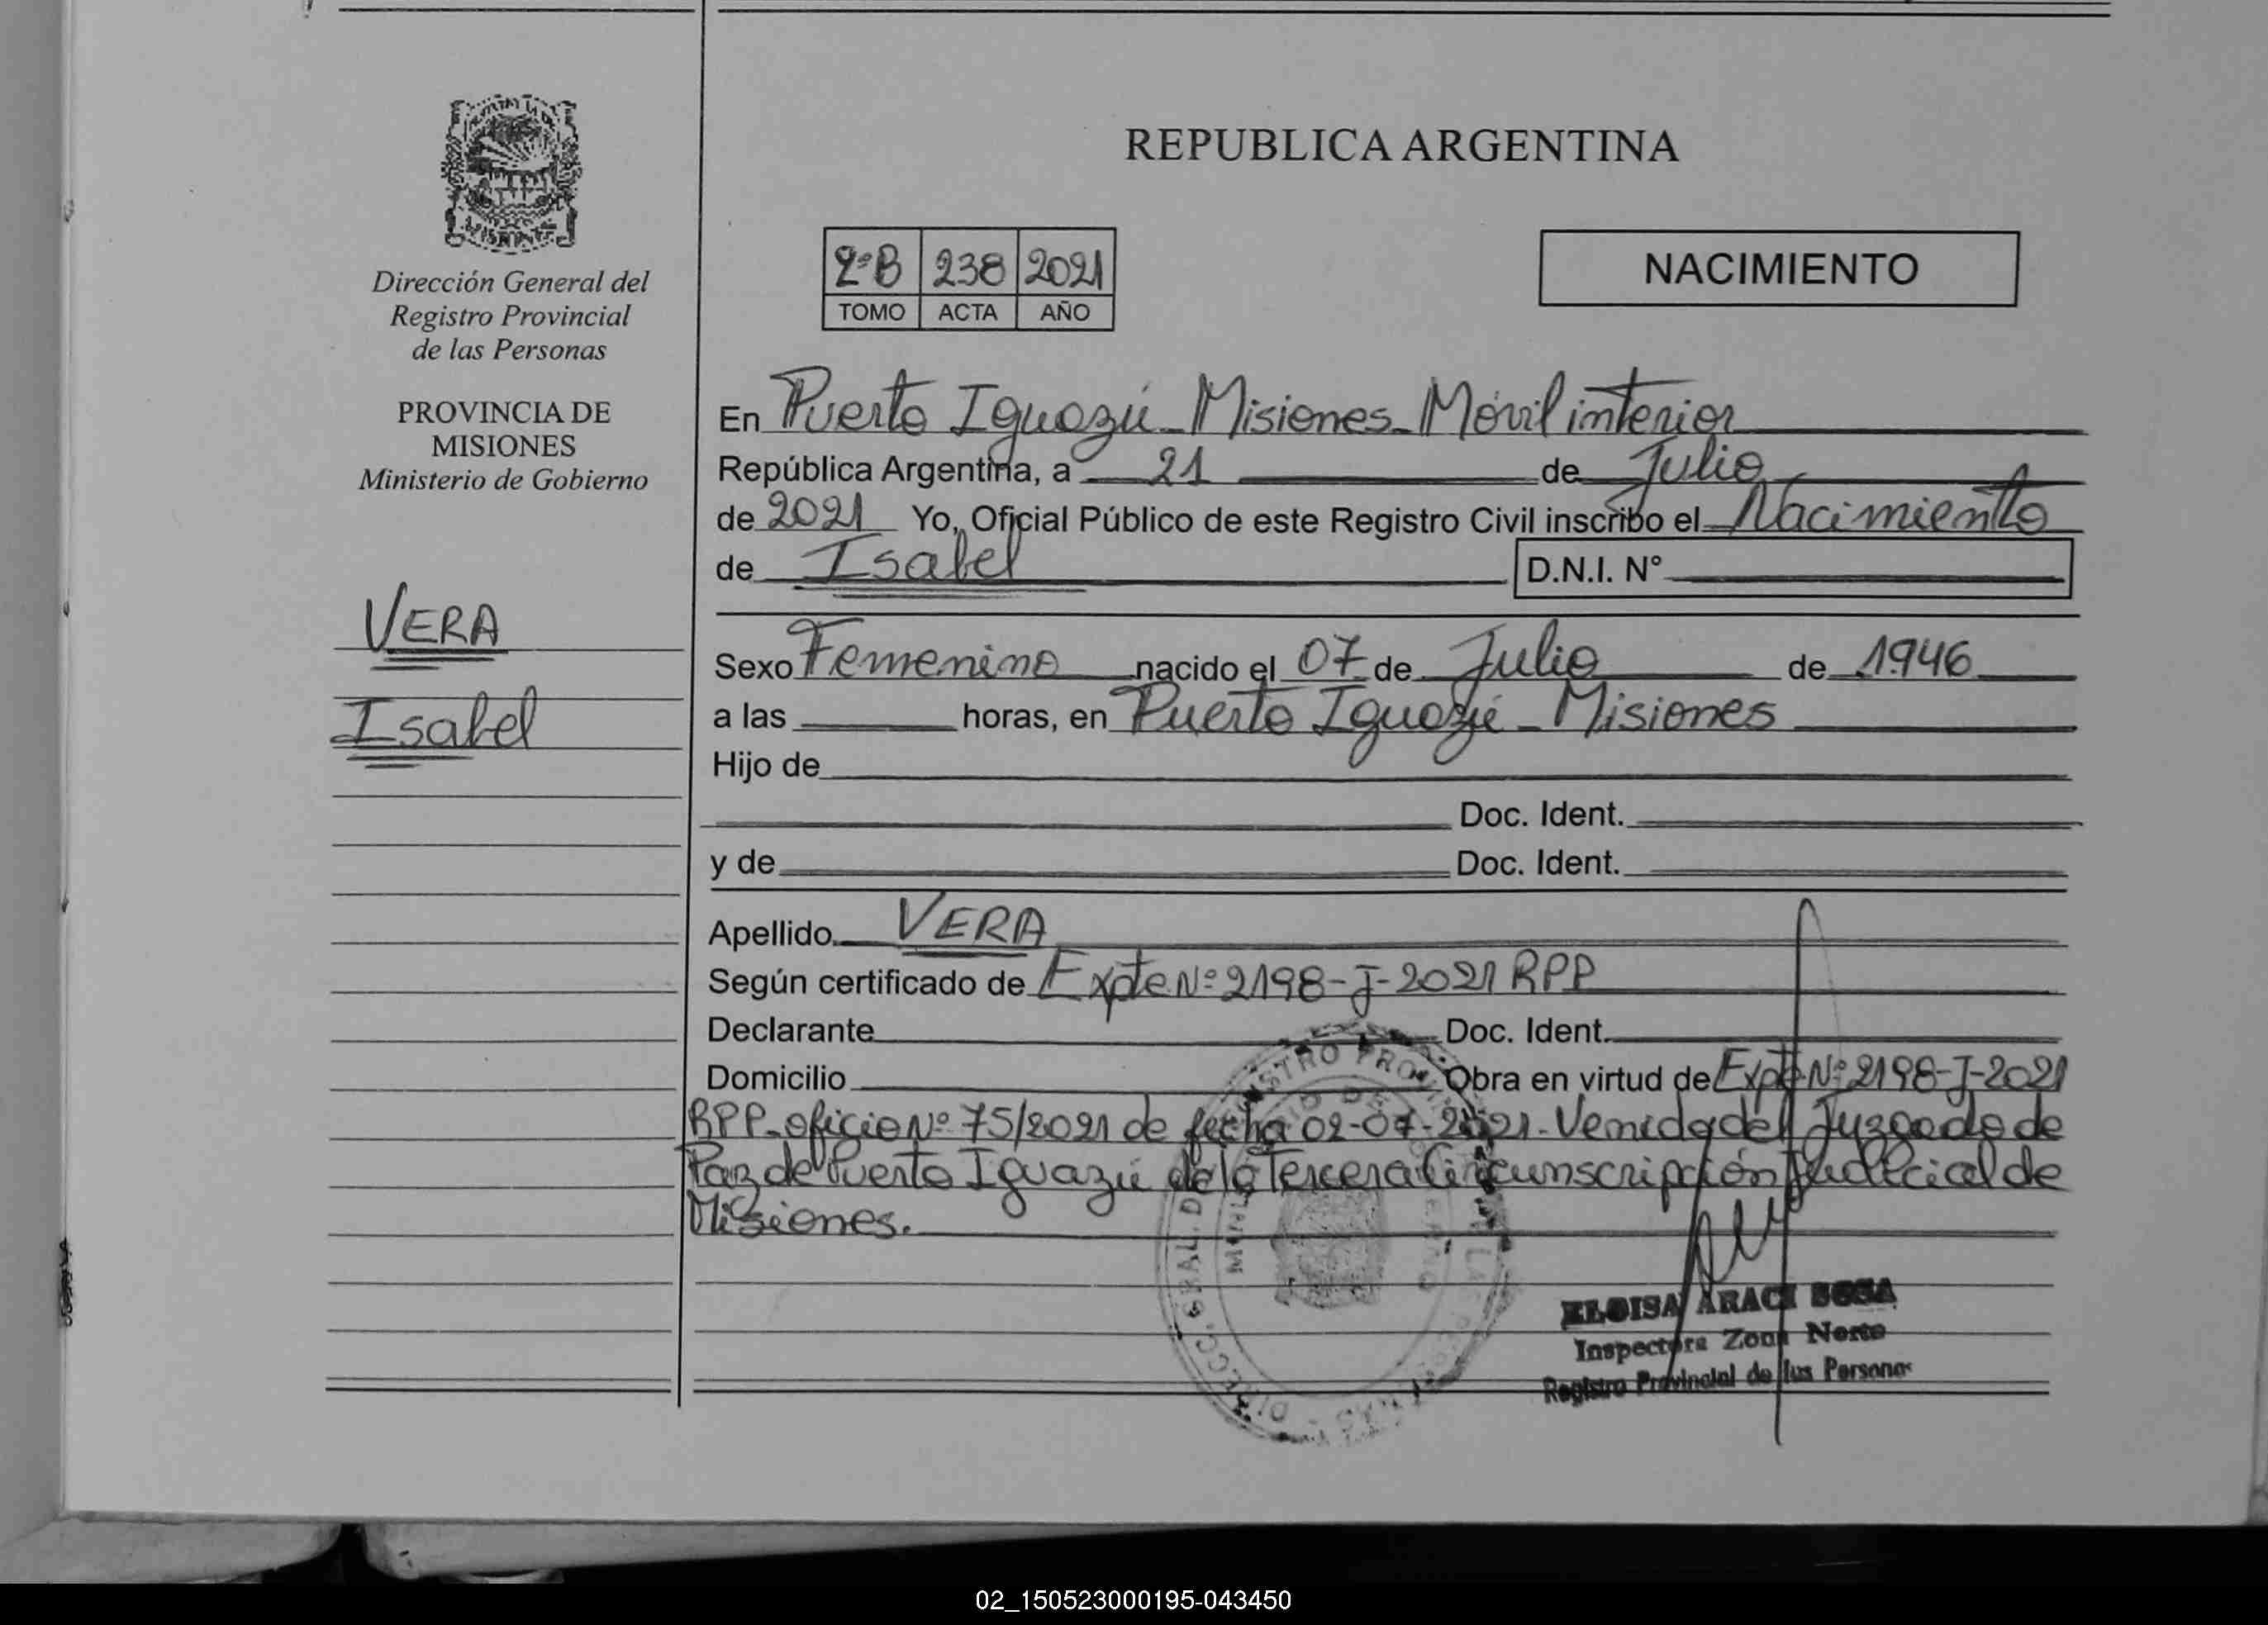 Dirección General del
Registro Provincial
de las Personas
PROVINCIA DE
MISIONES
Ministerio de Gobierno
VERA
Isabel
REPUBLICA ARGENTINA
2ºB 238 2021
TOMO ACTA AÑO
NACIMIENTO
En Puerto Iguazú - Misiones - Móvil interior
República Argentina, a 21 de Julio
de 2021 Yo, Oficial Público de este Registro Civil inscribo el Nacimiento
de Isabel D.N.I. N°
Sexo Femenino nacido el 07 de Julio de 1946
a las horas, en Puerto Iguazú - Misiones
Hijo de
Doc. Ident.
y de Doc. Ident.
Apellido VERA
Según certificado de Expte Nº 2198-J-2021 RPP
Declarante Doc. Ident.
Domicilio Obra en virtud de Expte Nº 2198-J-2021
RPP. oficio Nº 75/2021 de fecha 02-07-2021. Venida del Juzgado de
Paz de Puerto Iguazú de la Tercera Circunscripción Judicial de
Misiones.
ELOISA ARACI SOSA
Inspectora Zona Norte
Registro Provincial de las Personas
02_150523000195-043450